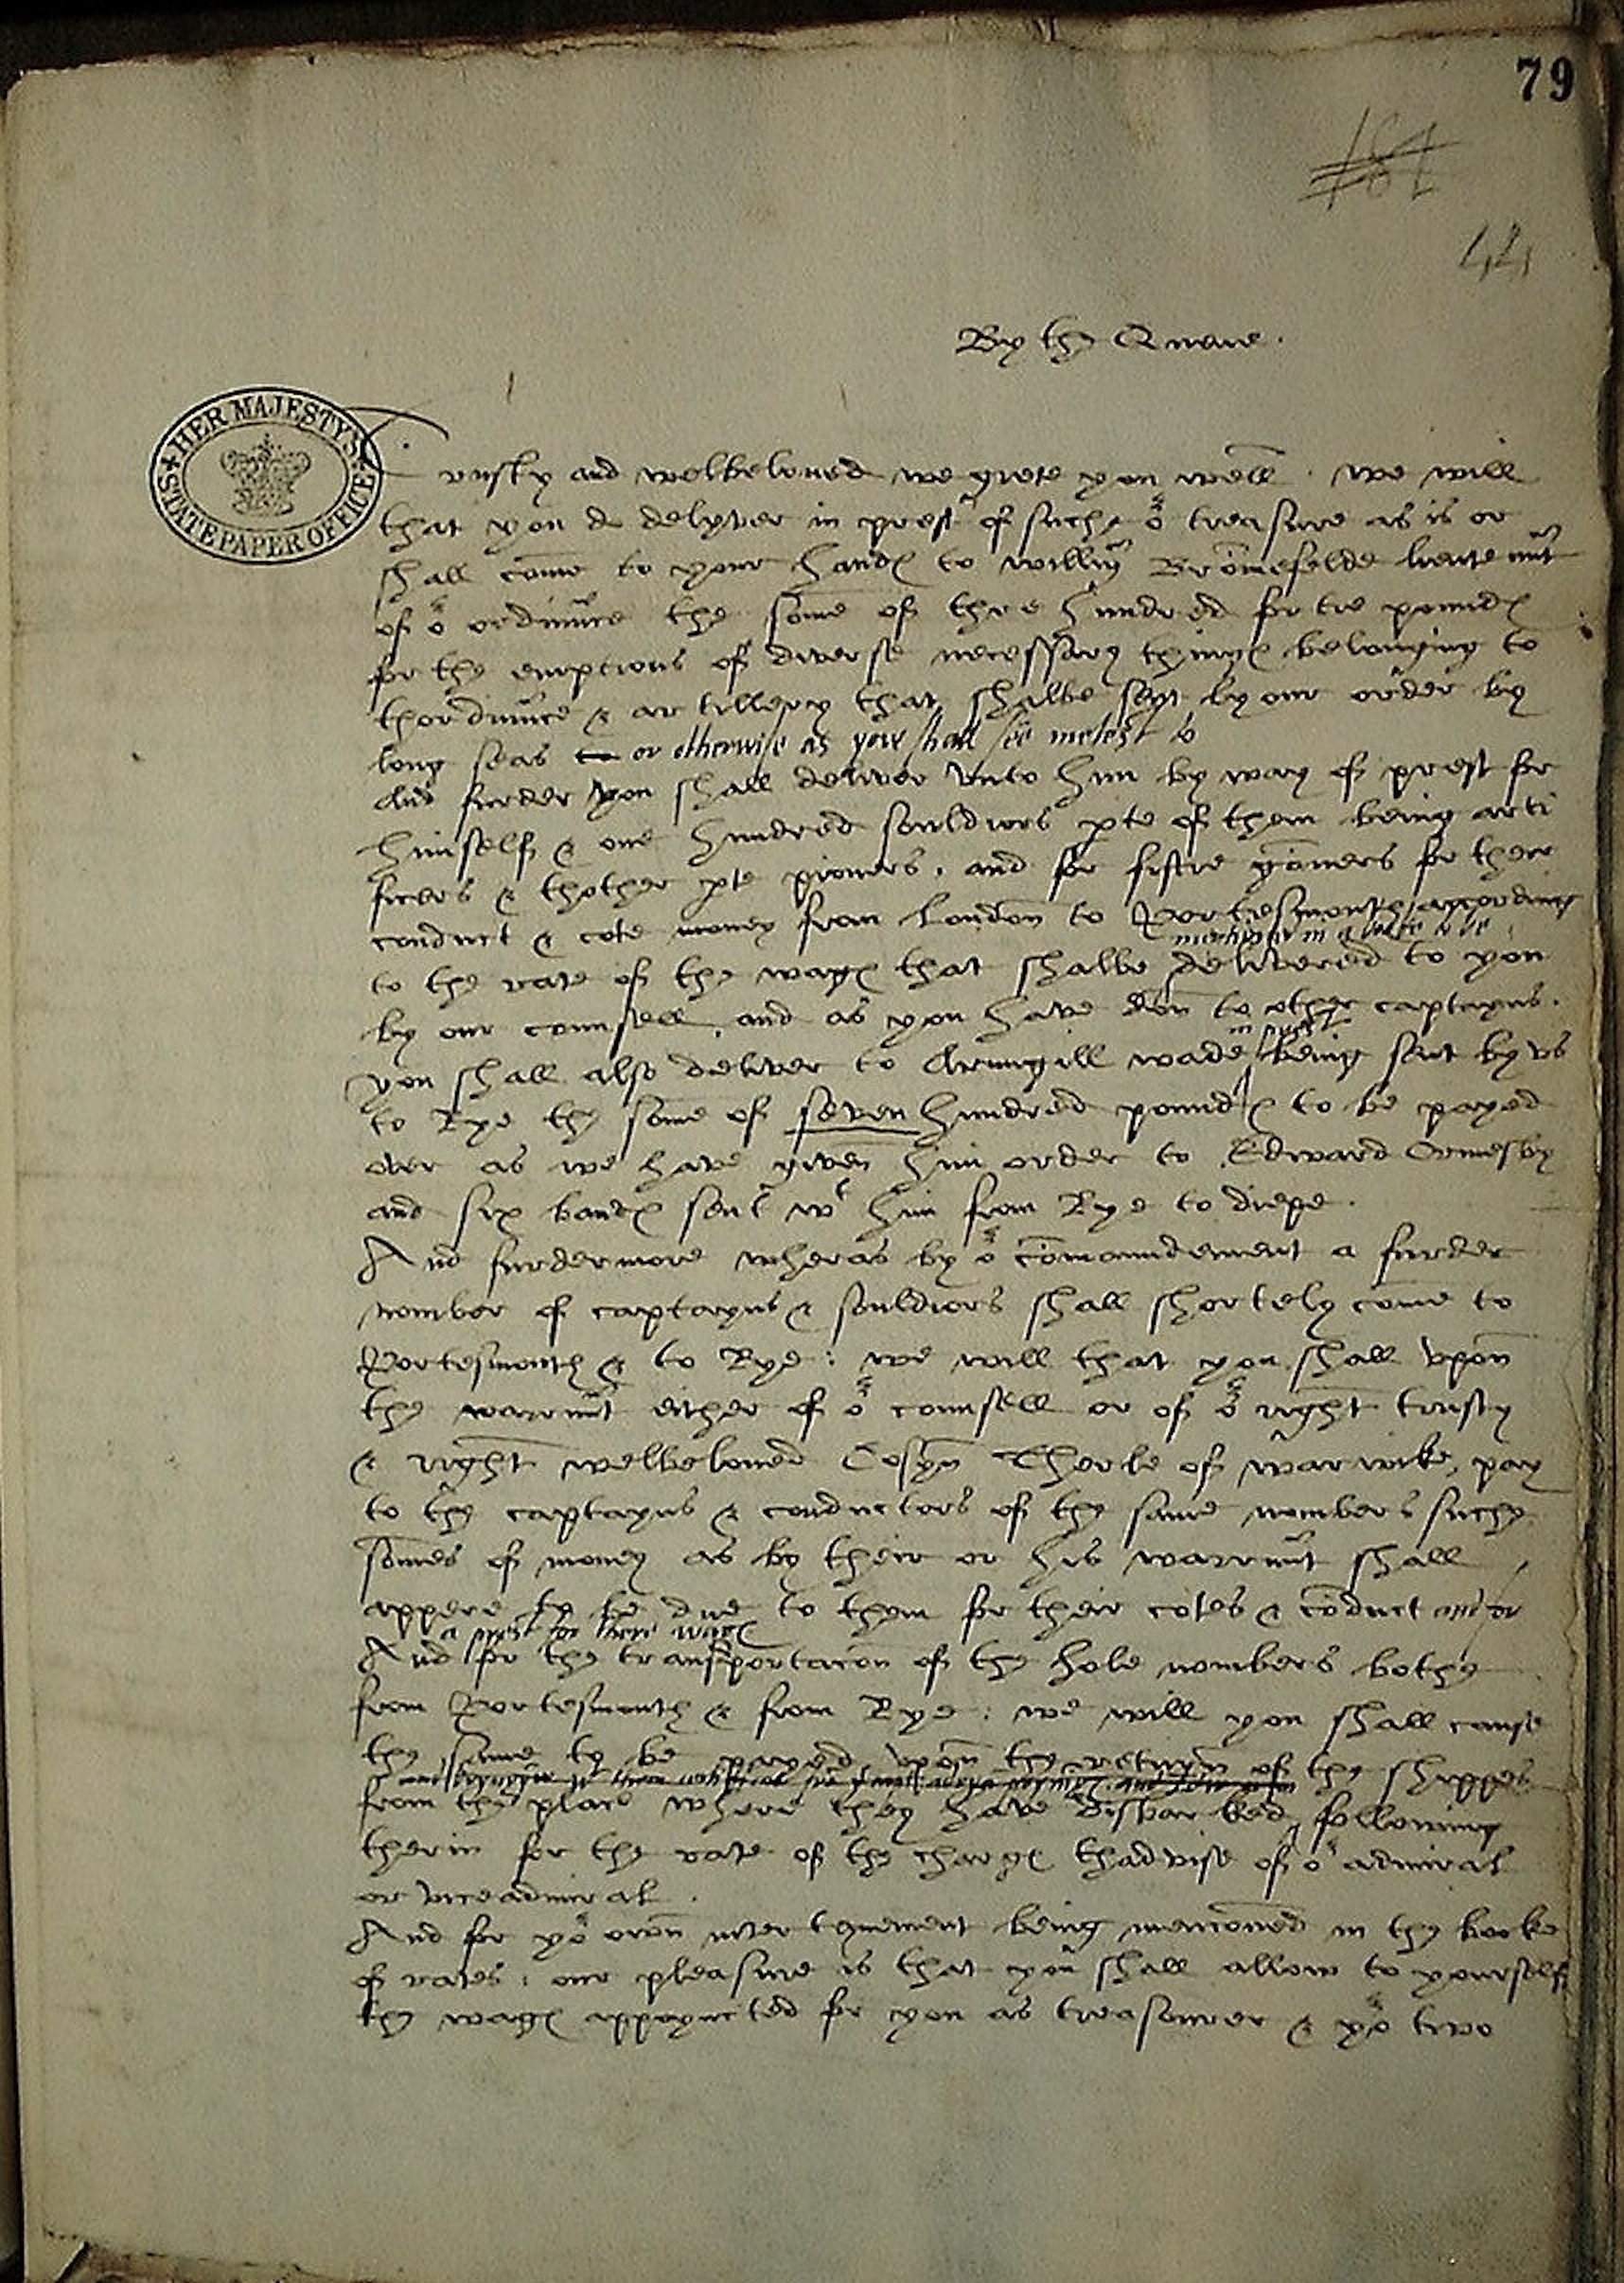 79
181
42
By the Quene.
HER MAJESTY'S STATE PAPER OFFICE
Trusty and welbeloved we grete you well. we will
that you do delyver in prest of suche oʳ treasure as is or
shall come to your handes to willm Bromefelde lieutennt
of oʳ ordinnce the some of thre hundred fortie poundes
for the emptions of diverse necessary thinges belonging to
thordinnce & artillery that shalbe sent by our order by
long seas or otherwise as you shall see metest
And furder you shall deliver unto him by way of prest for
himself & one hundred souldiors pte of them being arti
ficers & thother pte pioners, and for fiftie goners for there
conduct & cote money from London to Portesmouth according
mencioned in a booke to be
to the rate of the wages that shalbe delivered to you
by our counsell, and as you have don to other captayns.
in prest
you shall also deliver to Armigill wade being sent by us
to Rye the some of seven hundred poundes to be payed
over as we have given him order to Edward Ormesby
and six bandes sent wᵗ him from Rye to diepe.
And furdermore wheras by oʳ comaundement a furder
nomber of captayns & souldiors shall shortely come to
Portesmouth & to Rye: we will that you shall upon
the warrnnt either of oʳ counsell or of oʳ right trusty
& right welbeloved Cosyn Therle of warwike, pay
to the captayns & conductors of the same nombers suche
somes of money as by their or his warrnnt shall
appere to be due to them for their cotes & conduct and or
a prest for there wages
And for the transportacon of the hole nombers bothe
from Portesmouth & from Rye: we will you shall cause
the same to be payed upon the return of the shippes
from the place where they have disbarked, following
therin for the rate of the charges thadvise of oʳ admiral
or viceadmiral.
And for yoʳ own intertynement being mencioned in the booke
of rates: our pleasure is that you shall allow to yourself
the wages appoynted for you as treasourer & yoʳ two